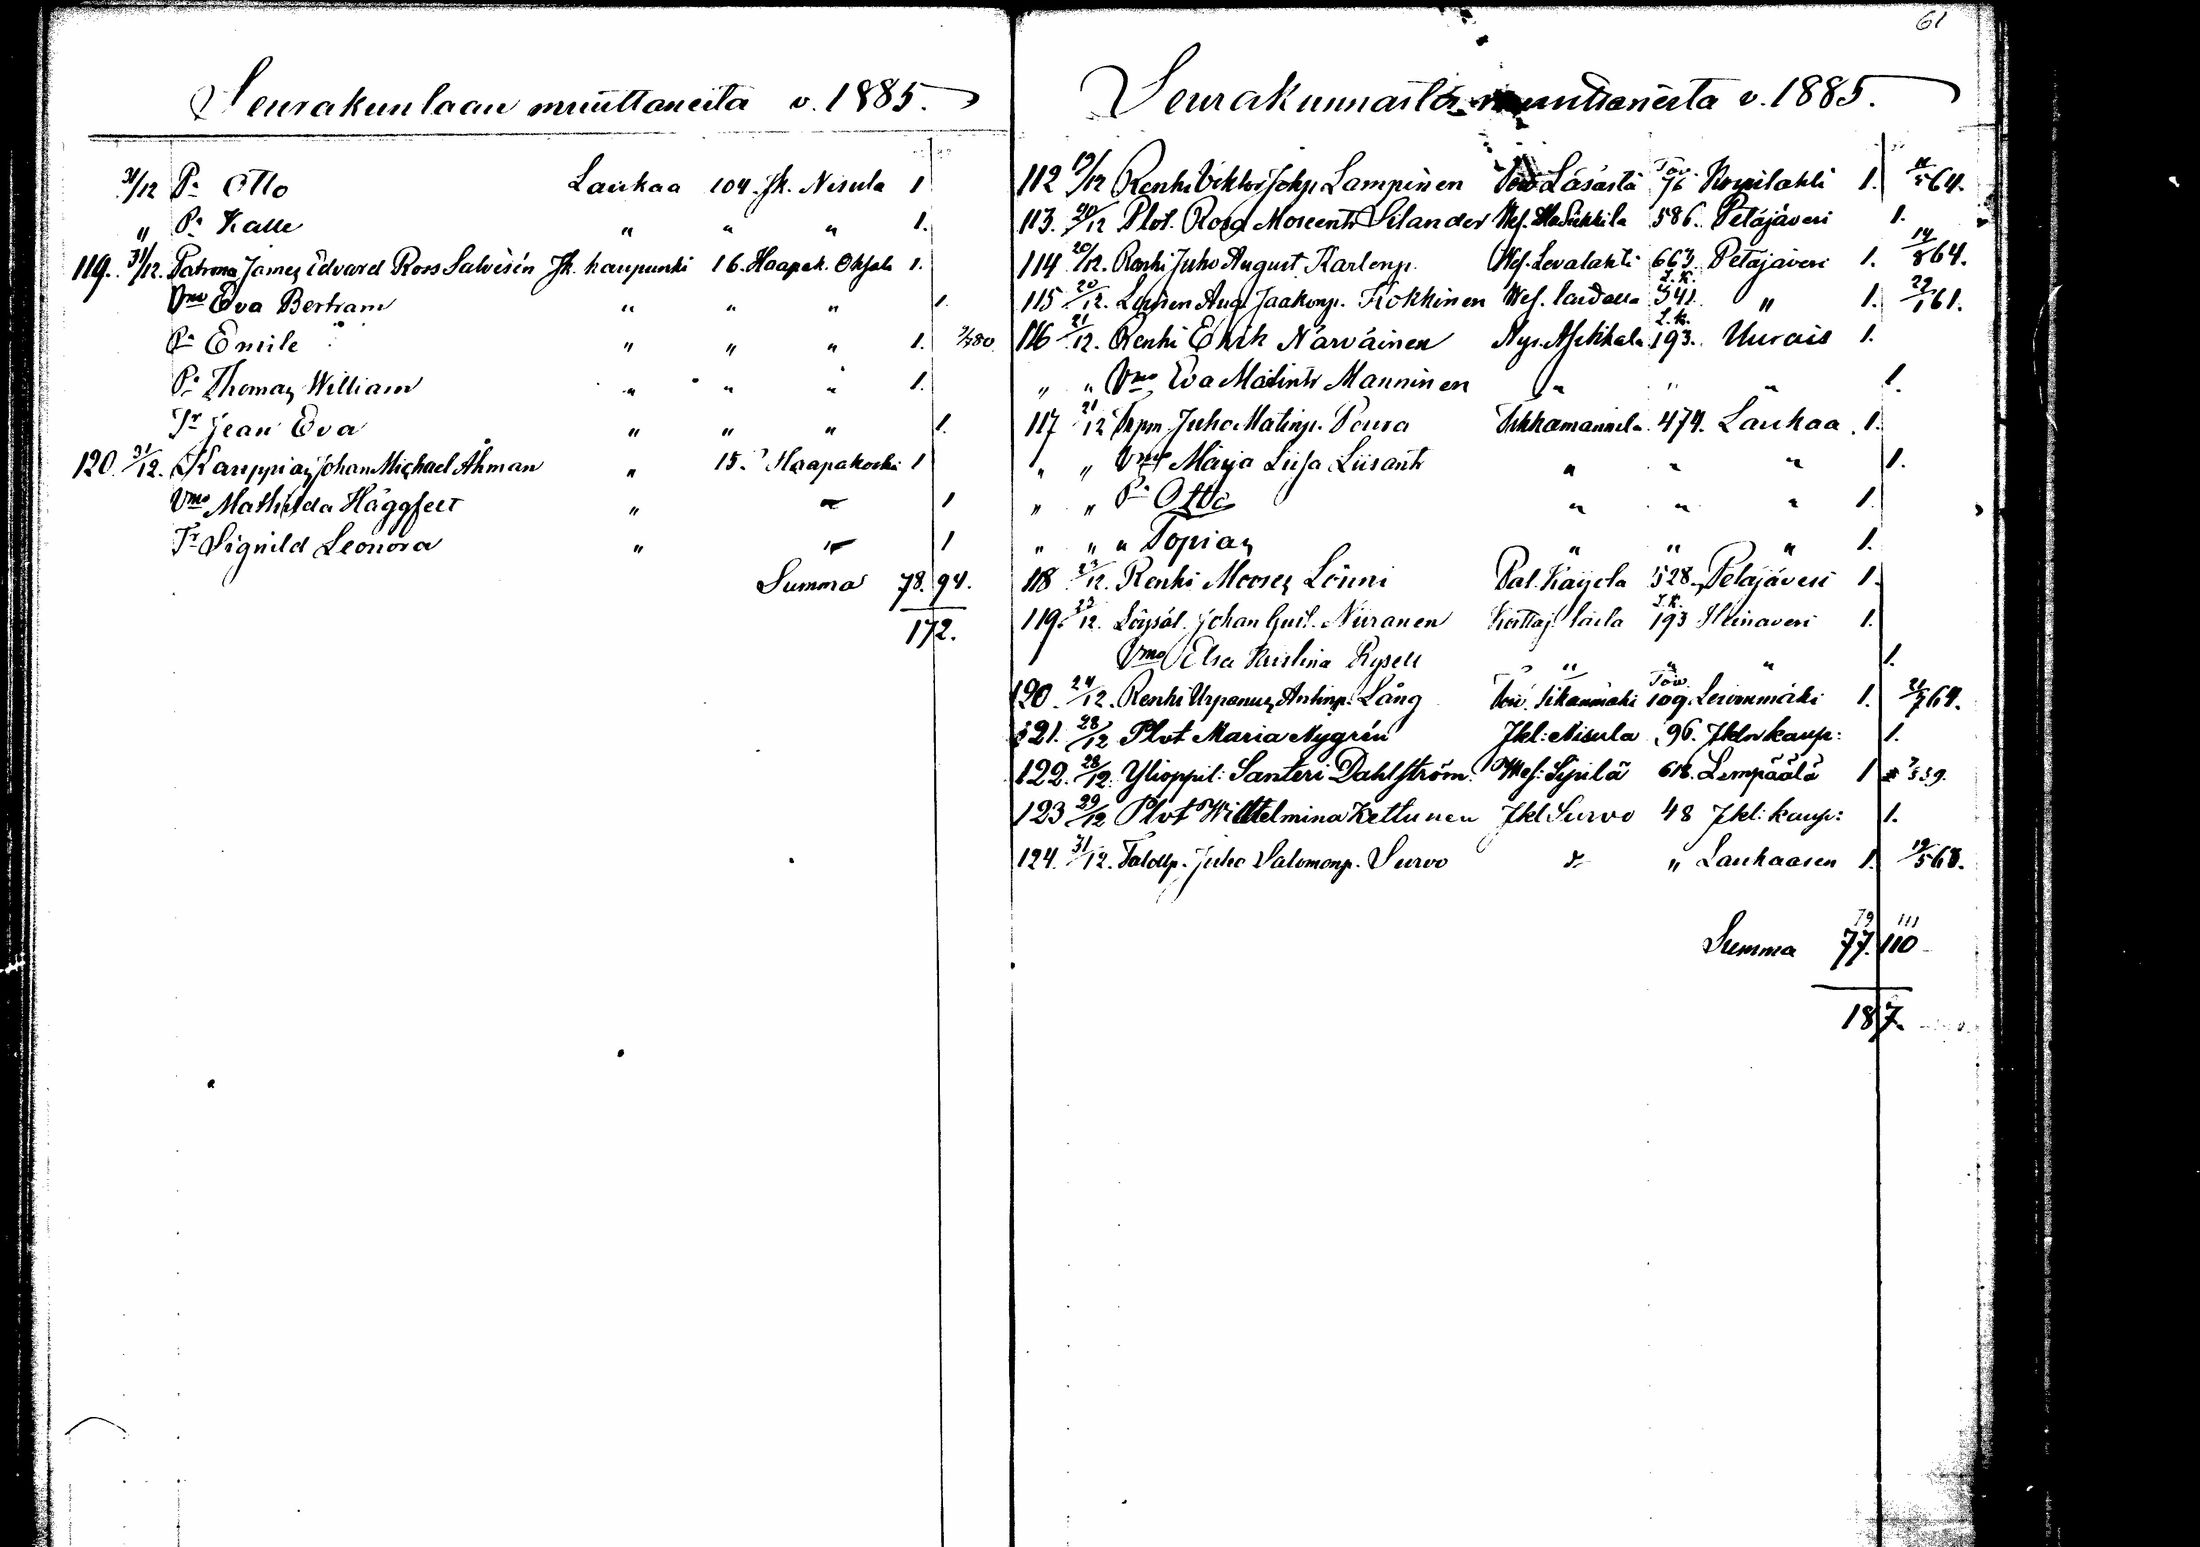 61
Seurakuntaan muuttaneita v. 1885.
31/12 Pa Otto Laukaa 104. Jk. Nisula 1
" Pa Kalle " " " 1.
119. 31/12. Patrona James Edvard Ross Salvesén Jk. kaupunki 16. Haapak. Ohjala 1.
Vmo Eva Bertram " " " 1.
Pa Emile " " " 1. 80
Pa Thomas William " " " 1.
Tr Jean Eva " " " 1.
120. 31/12. Kauppias Johan Michael Åhman " 15. Haapakoski 1
Vmo Mathilda Häggfelt " " 1
Tr Signild Leonora " " 1
Summa 78. 94.
172.
Seurakunnasta muuttaneita v. 1885.
112 19/12 Renki Viktor Johp. Lampinen Toiv. Läsästä Toiv. 76 Korpilahti 1. 64.
113. 20/12 Plot. Rosa Silander Wes. 586. Petäjävesi 1.
114 20/12. Renki Juho August Karlenp. Wes. Levalahti 663. Petäjävesi 1. 14/8 64.
115 20/12. Aug. Jaakonp. Kokkinen Wes. I.K. 541. " 1. 22/1 61.
116 21/12. Renki Erik Närväinen I.K. 193. Uurais 1.
" " Vmo Eva Matintr Manninen " " " 1.
117 21/12 Juho Matinp. Poura Tikkamannila 474. Laukaa. 1.
" " Vmo Maija Liisa Liisantr " " " 1.
" " Pa Otto " " " 1.
" " " Topias " " " 1.
118 23/12. Renki Mooses Lönni Pal. 528. Petäjävesi 1.
119. 23/12. Löysäl. Johan Gust. Niiranen I.K. 193 Heinävesi 1.
Vmo Elsa Kristina Rysell " " " 1.
120. 24/12. Renki Urpanus Antinp. Lång Toiv. Toiv. 109. Leivonmäki 1. 64.
121. 28/12 Plot Maria Nygrén Jkl: Nisula 96. Jklän kaup: 1.
122. 28/12. Ylioppil: Santeri Dahlström. Wes: Sipilä 618. Lempäälä 1 59.
123 29/12 Plot Wilhelmina Kettunen Jkl Survo 48 Jkl: kaup: 1.
124. 31/12. Talollp. Juho Salomonp. Survo " " Laukaasen 1. 19/5 68.
79 111
Summa 77. 110
187.